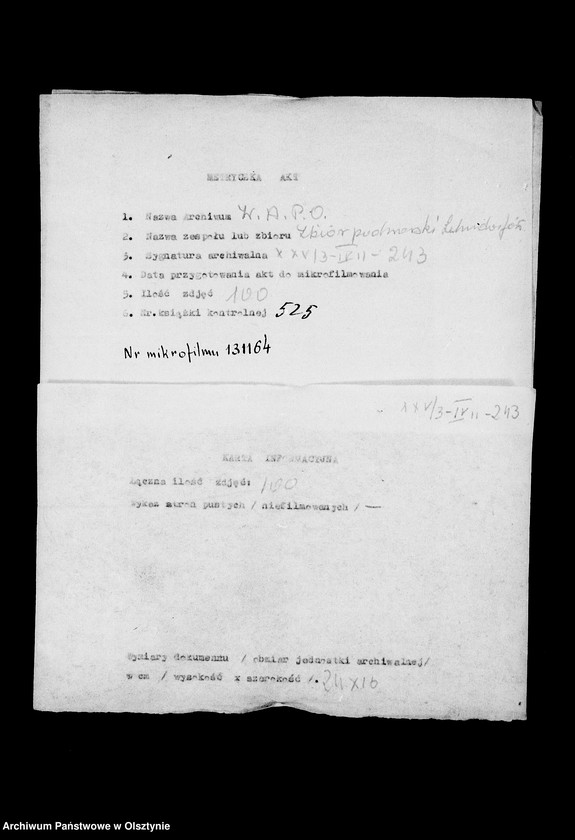 METRYCZKA AKT
1. Nazwa Archiwum W. A. P. O.
2. Nazwa zespołu lub zbioru Zbiór podmorski
3. Sygnatura archiwalna XXV/3-IV II - 243
4. Data przygotowania akt do mikrofilmowania
5. Ilość zdjęć 100
6. Nr.książki kontrolnej 525
Nr mikrofilmu 131164
XXV/3-IV II -243
KARTA INFORMACYJNA
Łączna ilość zdjęć: 100
Wykaz stron pustych / niefilmowanych / —
Wymiary dokumennu / obmiar jednostki archiwalnej/
w cm / wysokość x szerokość /. 24 x 16
Archiwum Państwowe w Olsztynie